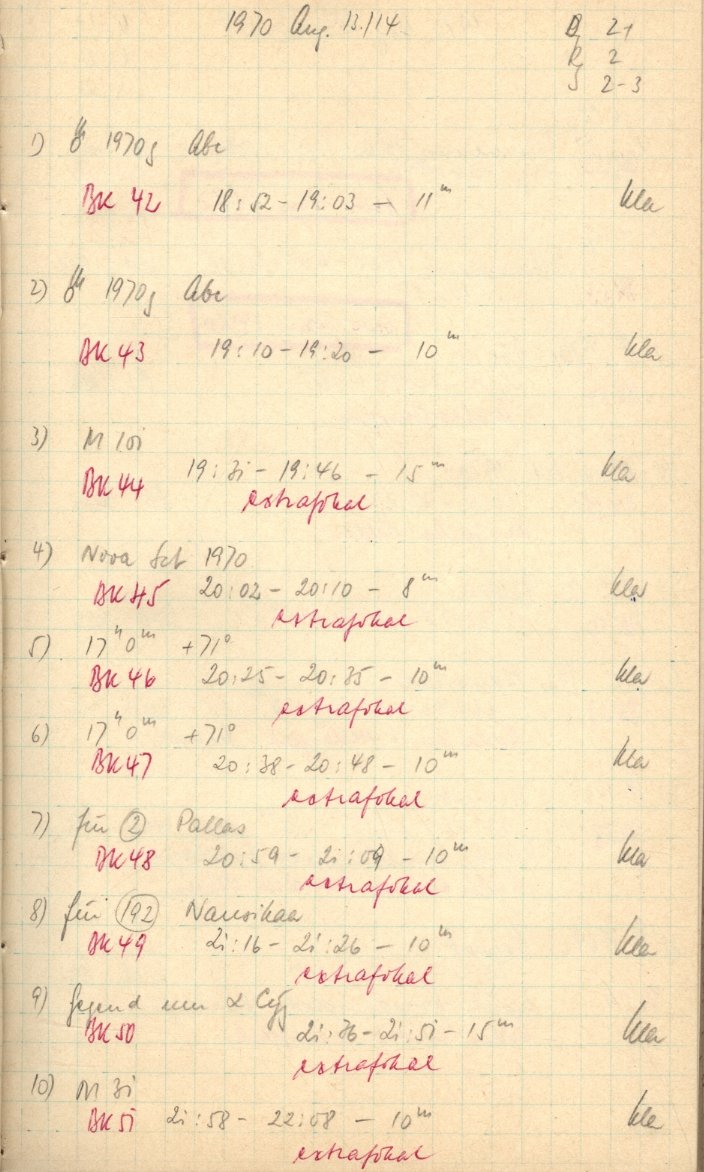 1970 Aug. 13./14.
D 21
R 2
S 2-3
1) 1970g Abe
BK 42 18:52-19:03 - 11ᵐ klar
2) 1970g Abe
BK 43 19:10-19:20 - 10ᵐ klar
3) M 101
BK 44 19:31-19:46 - 15ᵐ klar
extrafokal
4) Nova Sct 1970
BK 45 20:02-20:10 - 8ᵐ klar
extrafokal
5) 17ʰ0ᵐ +71°
BK 46 20:25-20:35 - 10ᵐ klar
extrafokal
6) 17ʰ0ᵐ +71°
BK 47 20:38-20:48 - 10ᵐ klar
extrafokal
7) für (2) Pallas
BK 48 20:59-21:09 - 10ᵐ klar
extrafokal
8) für (192) Nausikaa
BK 49 21:16-21:26 - 10ᵐ klar
extrafokal
9) Gegend um α Cyg
BK 50 21:36-21:51-15ᵐ klar
extrafokal
10) M 31
BK 51 21:58-22:08 - 10ᵐ klar
extrafokal